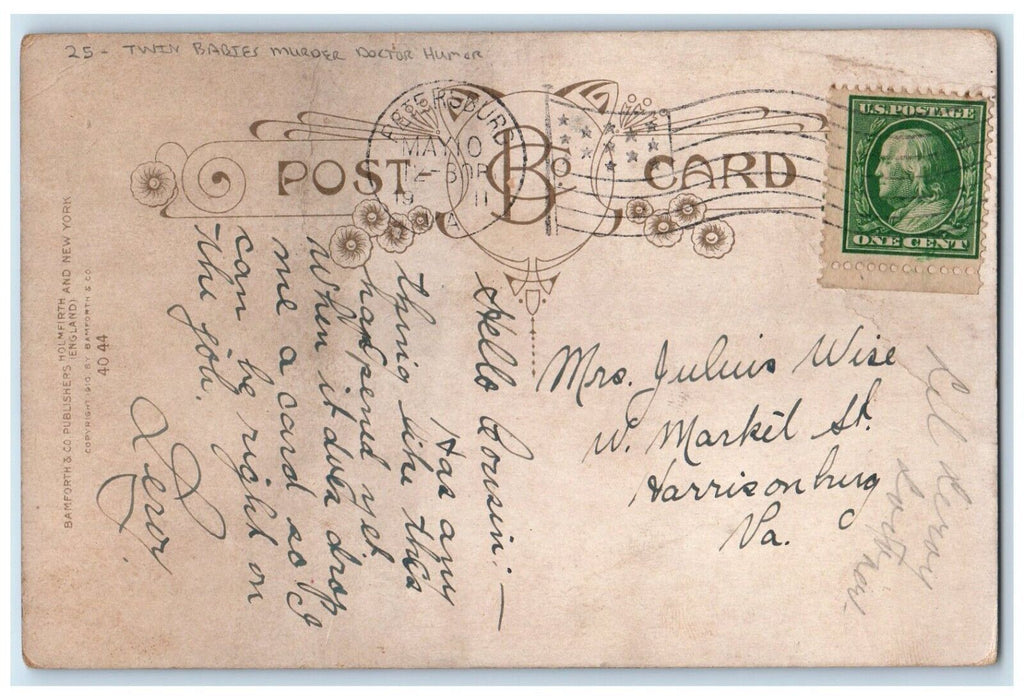 25 - TWIN BABIES MURDER DOCTOR HUMOR
POST CARD
B & Co.
MAY 10
19 11
VA
U.S. POSTAGE
ONE CENT
BAMFORTH & CO PUBLISHERS HOLMFIRTH AND NEW YORK
(ENGLAND)
COPYRIGHT 1910 BY BAMFORTH & CO.
4044
Hello Cousin: —
Has any
thing like this
happend yet
When it does drop
me a card so I
can be right on
the job.
Leroy.
Mrs. Julius Wise
W. Market St.
Harrisonburg
Va.
Leroy